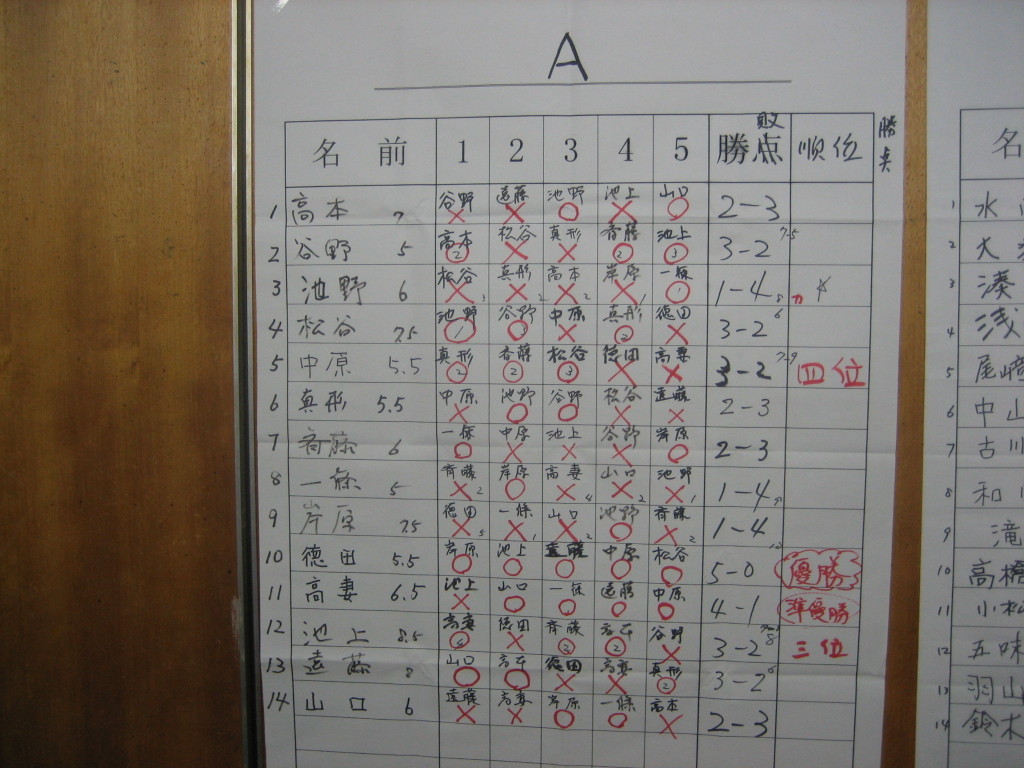 A
名 前 1 2 3 4 5 勝敗点 順位 勝点
1 高本 7 谷野 遠藤 池野 池上 山口 2-3
2 谷野 5 高本 松谷 真形 斉藤 池上 3-2 7.5
3 池野 6 松谷 真形 高本 岸原 一條 1-4
4 松谷 7.5 池野 谷野 中原 真形 徳田 3-2 6
5 中原 5.5 真形 斉藤 松谷 徳田 高妻 3-2 四位
6 真形 5.5 中原 池野 谷野 松谷 遠藤 2-3
7 斉藤 6 一條 中原 池上 谷野 岸原 2-3
8 一條 5 斉藤 岸原 高妻 山口 池野 1-4
9 岸原 7.5 徳田 一條 山口 池野 斉藤 1-4
10 徳田 5.5 岸原 池上 遠藤 中原 松谷 5-0 優勝
11 高妻 6.5 池上 山口 一條 遠藤 中原 4-1 準優勝
12 池上 8.5 高妻 徳田 斉藤 高本 谷野 3-2 8 三位
13 遠藤 8 山口 高本 徳田 高妻 真形 3-2 6
14 山口 6 遠藤 高妻 岸原 一條 高本 2-3
名
1 水
2 大
3 湊
4 浅
5 尾崎
6 中山
7 古川
8 和
9 滝
10 高橋
11 小松
12 五味
13 羽山
14 鈴木